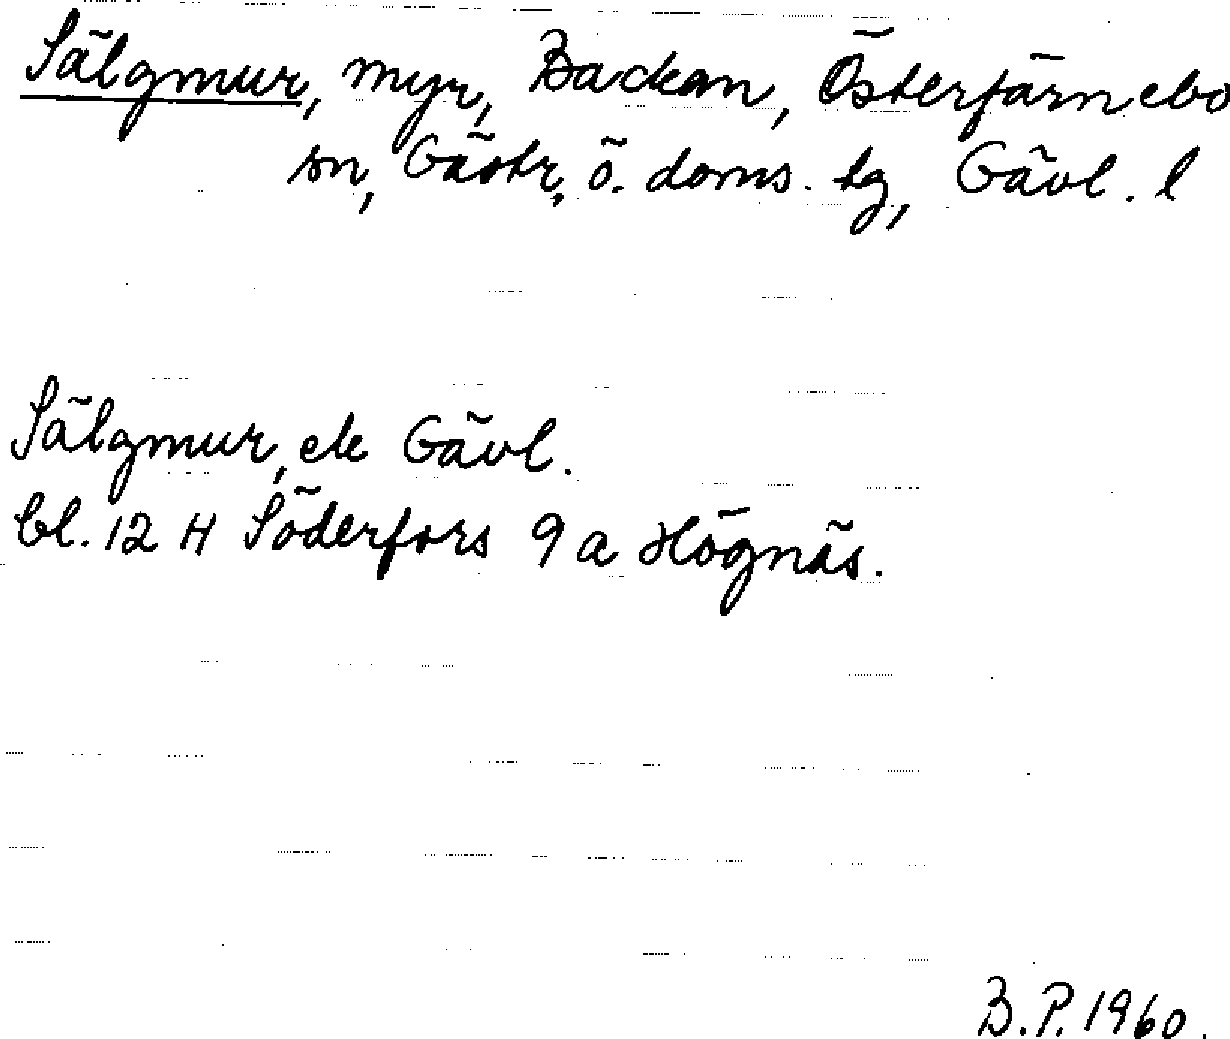 Sälgmur, myr, Backan, Österfärnebo
sn, Gästr. ö. doms. tg, Gävl. l
Sälgmur, ek Gävl.
bl. 12 H Söderfors 9 a Högnäs.
B.P. 1960.